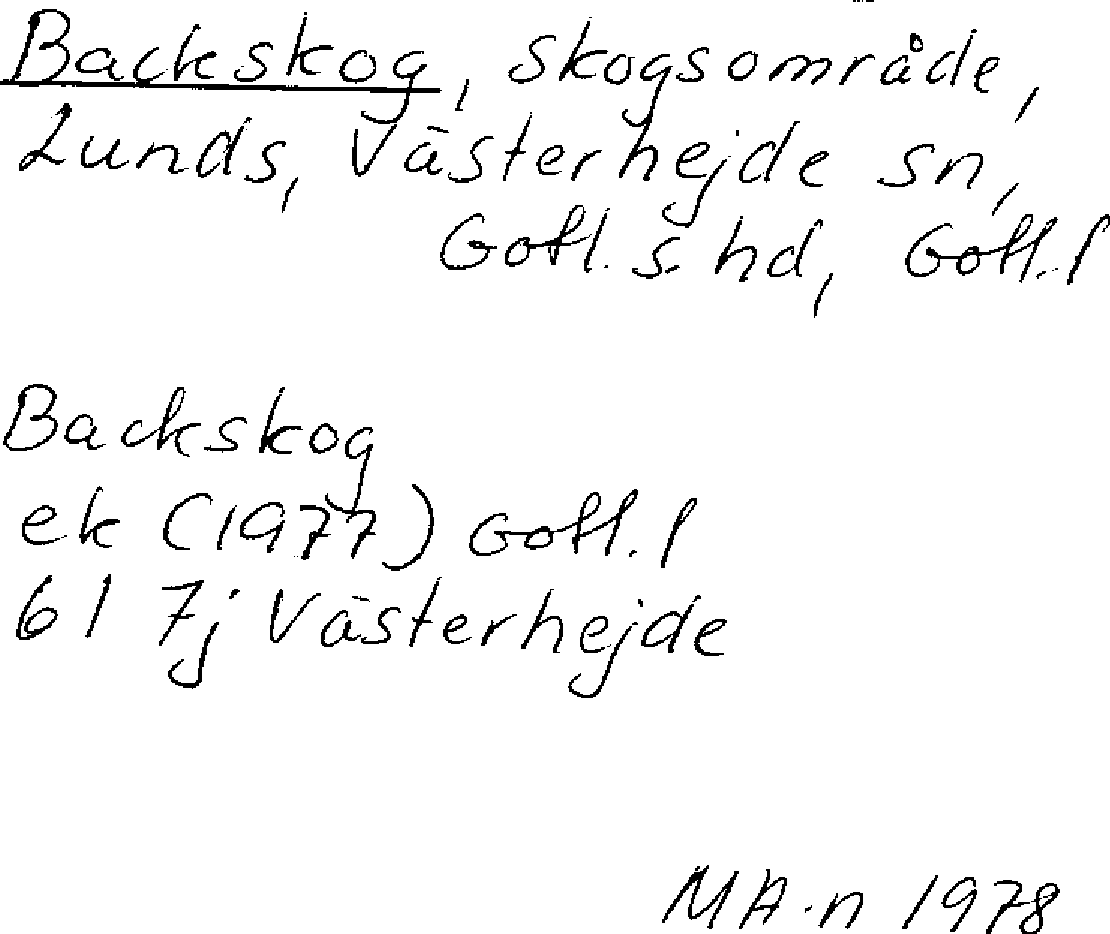 Backskog, skogsområde,
Lunds, Västerhejde sn,
Gotl. s. hd, Gotl. l
Backskog
ek (1977) Gotl. l
61 7j Västerhejde
MA-n 1978